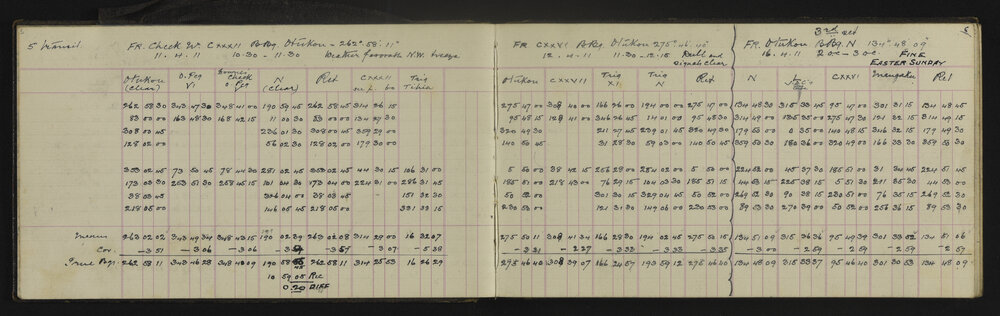 5" transit
FR. Check W. CXXXII BRg. Otukou = 262° 58' 11"
11. 4. 11 10.30 - 11.30 Weather favorable N.W. breeze
Otukou (clear) D. Peg VI Check O Peg N (clear) Ref CXXII Trig Tihia
262 58 30 343 47 30 348 41 00 190 59 45 262 58 45 314 26 15
83 00 00 163 48 30 168 42 15 11 00 30 83 00 00 134 27 30
308 00 45 236 01 30 308 00 45 359 29 00
128 02 00 56 02 30 128 02 00 179 30 00
353 02 45 73 50 45 78 44 30 281 02 45 353 02 45 44 30 15 106 31 00
173 03 30 253 51 30 258 45 15 101 04 30 173 04 00 224 31 00 286 31 45
38 03 45 306 04 00 38 03 45 151 32 30
218 05 00 146 05 45 218 05 00 331 33 15
Means 263 02 02 343 49 34 348 43 15 190 02 39 263 02 08 314 29 00 16 32 07
Cor. - 3 51 - 3 06 - 3 06 - 3 54 - 3 57 - 3 07 - 5 38
True Brgs 262 58 11 343 46 28 348 40 09 190 58 45 262 58 11 314 25 53 16 26 29
10 59 05 Rec
0.20 DIFF
FR CXXVI BRg. Otukou 275° 46' 40"
12. 4. 11 11.30 - 12.15 Dull and signals clear
Otukou CXXVII Trig XI N Trig 2 Ref
275 47 00 308 40 00 166 26 00 194 00 00 275 47 00
95 48 15 128 41 00 346 26 45 14 01 00 95 48 30
320 49 30 211 27 45 239 01 45 320 49 30
140 50 45 31 28 30 59 03 00 140 50 45
5 50 00 38 42 15 256 28 00 284 02 00 5 50 00
185 51 00 218 43 00 76 29 15 104 03 30 185 51 15
50 52 00 301 30 15 329 04 45 50 52 00
230 53 00 121 31 30 149 06 00 230 53 00
275 50 11 308 41 34 166 28 30 194 02 45 275 50 15
- 3 31 - 2 27 - 3 33 - 3 33 - 3 35
275 46 40 308 39 07 166 24 57 193 59 12 275 46 40
3rd set
5
FR. Otukou BRg. N 134° 48' 09"
16. 4. 11 2 o.c - 3 o.c. FINE
EASTER SUNDAY
N CXXVI mangaku Ref
134 48 30 315 33 45 95 47 00 301 31 15 134 48 45
314 49 00 135 35 00 275 47 30 121 32 15 314 49 15
179 53 00 0 35 00 140 48 15 346 32 15 179 49 30
359 53 30 180 36 00 320 49 00 166 33 30 359 53 30
224 52 00 45 37 30 185 51 00 31 34 45 224 51 45
44 53 15 225 38 15 5 51 30 211 35 30 44 53 00
269 52 30 90 38 15 230 51 00 76 35 15 269 52 30
89 53 30 270 39 00 50 52 00 256 36 15 89 53 30
134 51 09 315 36 36 95 49 39 301 33 52 134 51 06
- 3 00 - 2 59 - 2 59 - 2 59 - 2 57
134 48 09 315 33 37 95 46 40 301 30 53 134 48 09